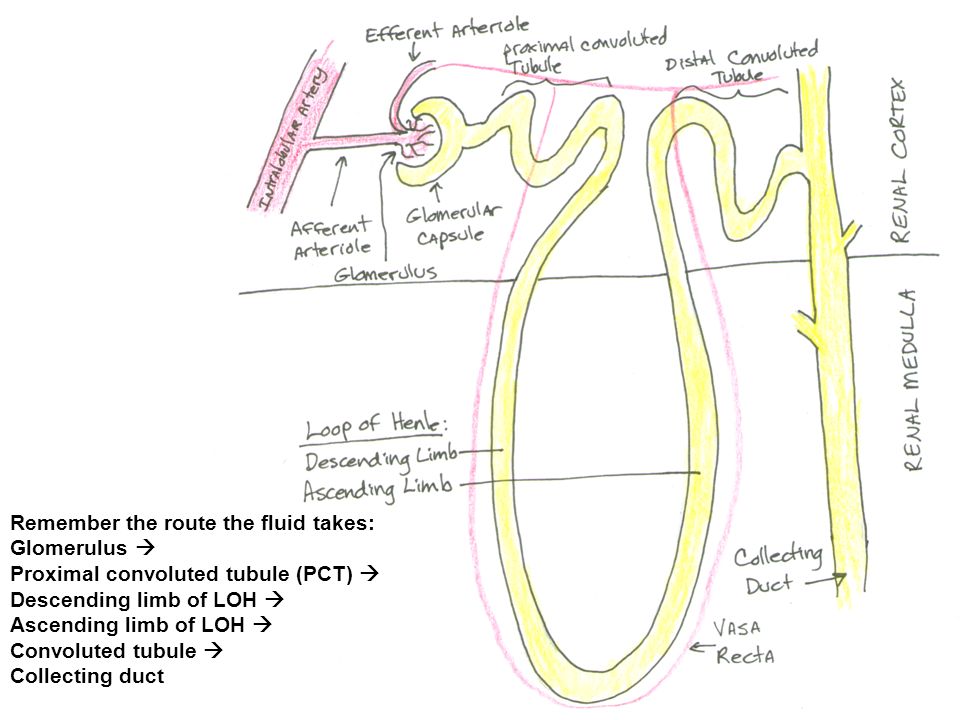 Efferent Arteriole
Proximal Convoluted
Tubule
Distal Convoluted
Tubule
Intralobular Artery
Afferent
Arteriole
Glomerular
Capsule
Glomerulus
RENAL CORTEX
RENAL MEDULLA
Loop of Henle:
Descending Limb
Ascending Limb
Remember the route the fluid takes:
Glomerulus →
Proximal convoluted tubule (PCT) →
Descending limb of LOH →
Ascending limb of LOH →
Convoluted tubule →
Collecting duct
Collecting
Duct →
VASA
Recta